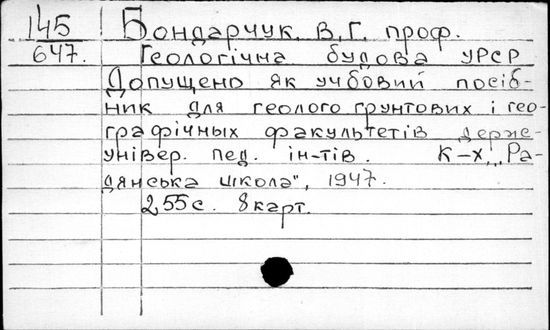 145 Бондарчук. В.Г. проф.
647. Геологічна будова УРСР
Допущено як учбовий посіб-
ник для геолого грунтових і гео-
графічных факультетів держ-
універ. пед. ін-тів. К-х, "Ра-
дянська школа", 1947.
255с. 8карт.